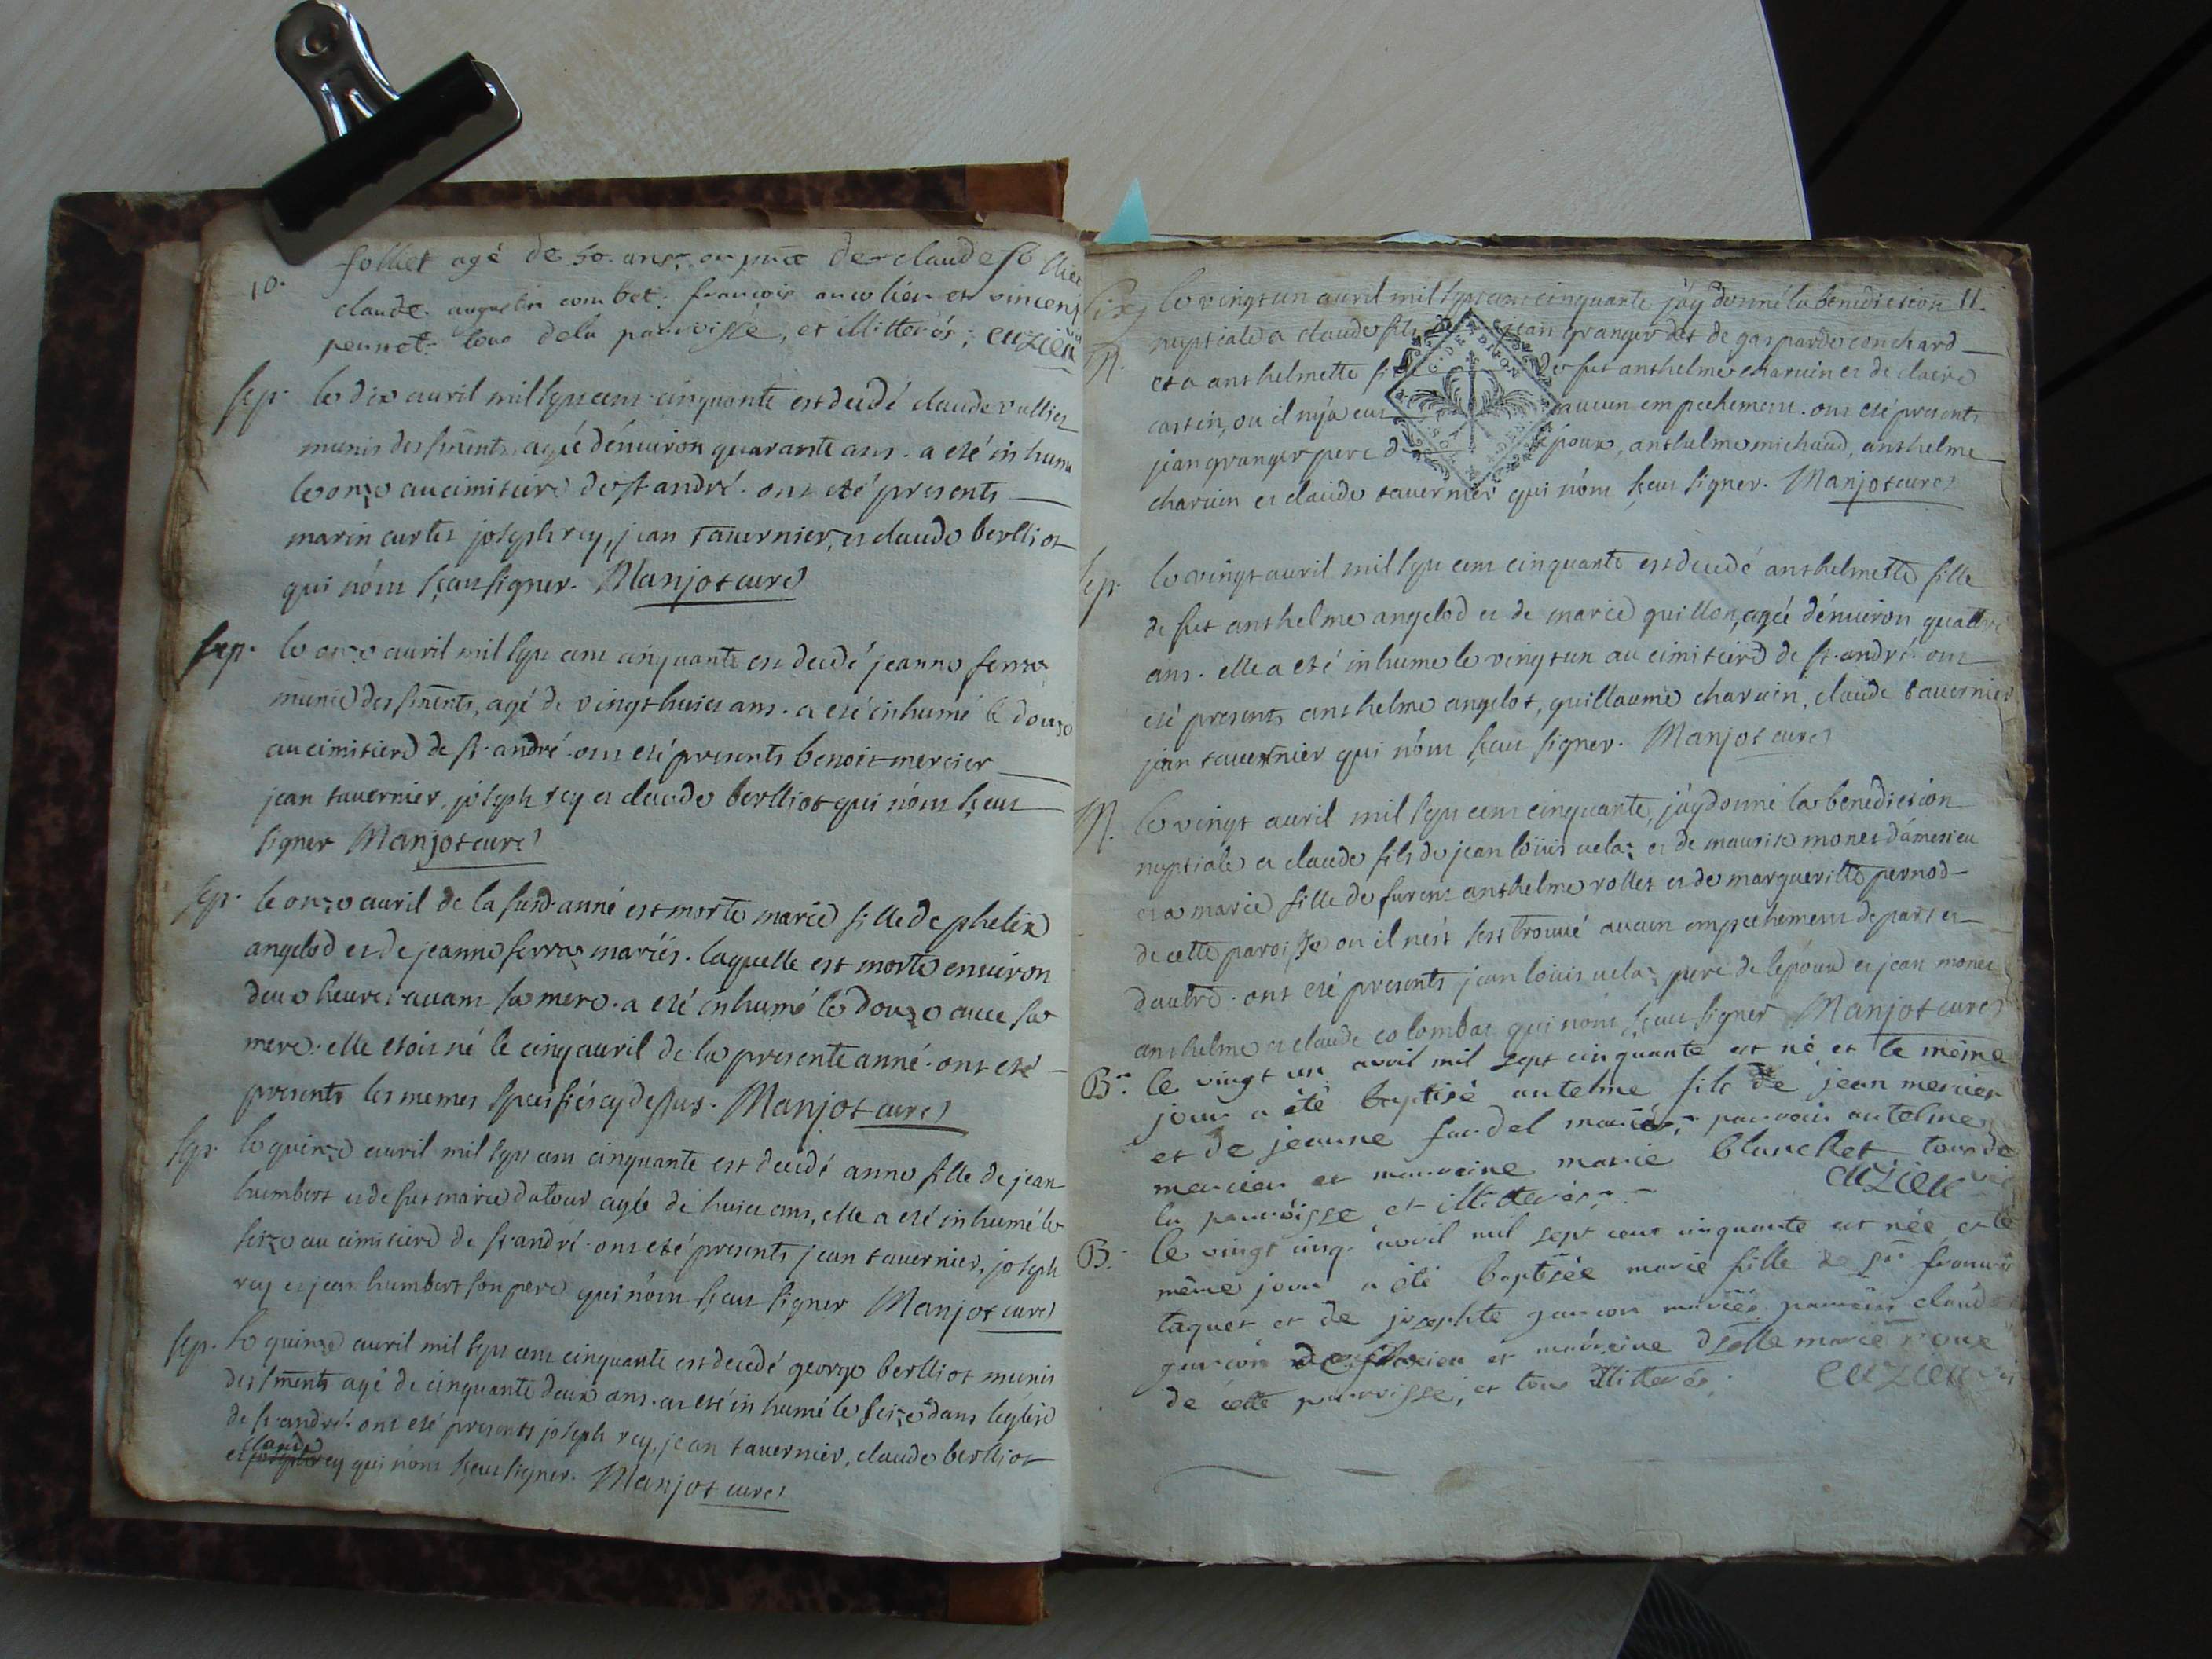 10.
follet agé de 50. ans, en pnce de claude follier
claude augustin combet: françois ancolieu et vincent
pernet: tous de la parroisse, et illitterés; euzieu
sep. le dix avril mil sept cens cinquante est decdé claude vallier
munis des sments, agée dénuiron quarante ans. a eté inhumé
le onze au cimitiere de st andré. ont eté presents
marin curtet joseph rey, jean tavernier, et claude berlliot
qui nónt sceu signer. Manjot curé
sep. le onze avril mil sept cens cinquante est decdé jeanne ferraz
munie des sments, agé de vingt huict ans. a eté inhumé le douze
au cimitiere de st. andré. ont eté presents benoit mercier
jean tavernier, joseph rey et claude berlliot qui nónt sceu
signer Manjot curé
sep. le onze avril de la susd. anné est morte marie fille de phelix
angelod et de jeanne ferraz mariés. laquelle est morte environ
deux heures avant sa mere. a eté inhumé le douze avec sa
mere. elle etoit né le cinq avril de la presente anné. ont eté
presents les memes specifiés cy dessus. Manjot curé
sep. le quinze avril mil sept cens cinquante est decdé anne fille de jean
humbert et de fut marie dutour agée de huict ans, elle a eté inhumé le
seize au cimitiere de st. andré. ont eté presents jean tavernier, joseph
rey et jean humbert son pere qui nónt sceu signer Manjot curé
sep. le quinze avril mil sept cens cinquante est decedé george berlliot munis
des sments agé de cinquante deux ans. a eté inhumé le seize dans léglise
de st. andré. ont eté presents joseph rey, jean tavernier, claude berlliot
et claude rey qui nónt sceu signer. Manjot curé
11.
le vingt un avril mil sept cens cinquante j'áy donné la benediction
M. nuptiale a claude fils jean granger et de gasparde conchard
et a anthelmette fi de fut anthelme charvin et de claire
castin, ou il nýa eut aucun empechement. ont eté presents
jean granger pere d époux, anthelme michaud, anthelme
charvin et claude tavernier qui nónt sceu signer. Manjot curé
sep. le vingt avril mil sept cens cinquante est decdé anthelmette fille
de fut anthelme angelod et de marie guillon, agée dénuiron quattre
ans. elle a eté inhume le vingt un au cimitierd de st. andré. ont
eté presents anthelme angelot, guillaume charvin, claude tavernier
jean tavernier qui nónt sceu signer. Manjot curé
M. le vingt avril mil sept cens cinquante, j'áy donné la benediction
nuptiale a claude fils de jean loüis velaz et de maurise monet d'ámesieu
et a marie fille de furent anthelme rollet et de margueritte pernod
de cette paroisse ou il nést sest trouvé aucun empechement de part et
dautre. ont eté presents jean loüis velaz pere de lépoux et jean monet
anthelme et claude colombat qui nónt sceu signer Manjot curé
B. le vingt un avril mil sept cinquante est né et le même
jour a été baptisé antelme fils de jean mercier
et de jeanne fardel mariés; parrain antelme
mercier et marraine marie blanchet tous de
la parroisse et illitterés. euzieu vic
B. le vingt cinq. avril mil sept cent cinquante est née et le
même jour a été baptisée marie fille de sr. françois
taquet et de josephte garcon mariés parrain claude
garcon et marraine dzelle marie roux
de cette parroisse, et tous illitterés. euzieu vic